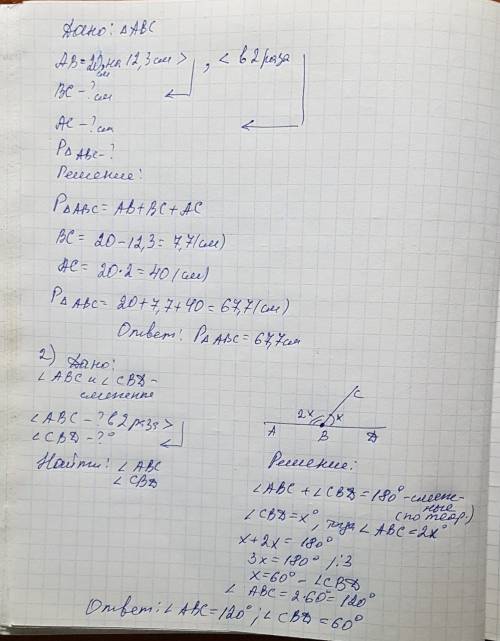 Дано: △ABC
AB = 20 см, на 12,3 см > , < в 2 раза
BC - ? см
AC - ? см
P△ABC - ?
Решение:
P△ABC = AB + BC + AC
BC = 20 - 12,3 = 7,7 (см)
AC = 20 · 2 = 40 (см)
P△ABC = 20 + 7,7 + 40 = 67,7 (см)
Ответ: P△ABC = 67,7 см
2) Дано:
∠ABC и ∠CBD -
смежные
∠ABC - ? в 2 раза >
∠CBD - ?°
Найти: ∠ABC
∠CBD
C
2x x
A B D
Решение:
∠ABC + ∠CBD = 180° - смеж-
ные
(по теор.)
∠CBD = x°, тогда ∠ABC = 2x°
x + 2x = 180°
3x = 180° /:3
x = 60° - ∠CBD
∠ABC = 2·60° = 120°
Ответ: ∠ABC = 120°; ∠CBD = 60°